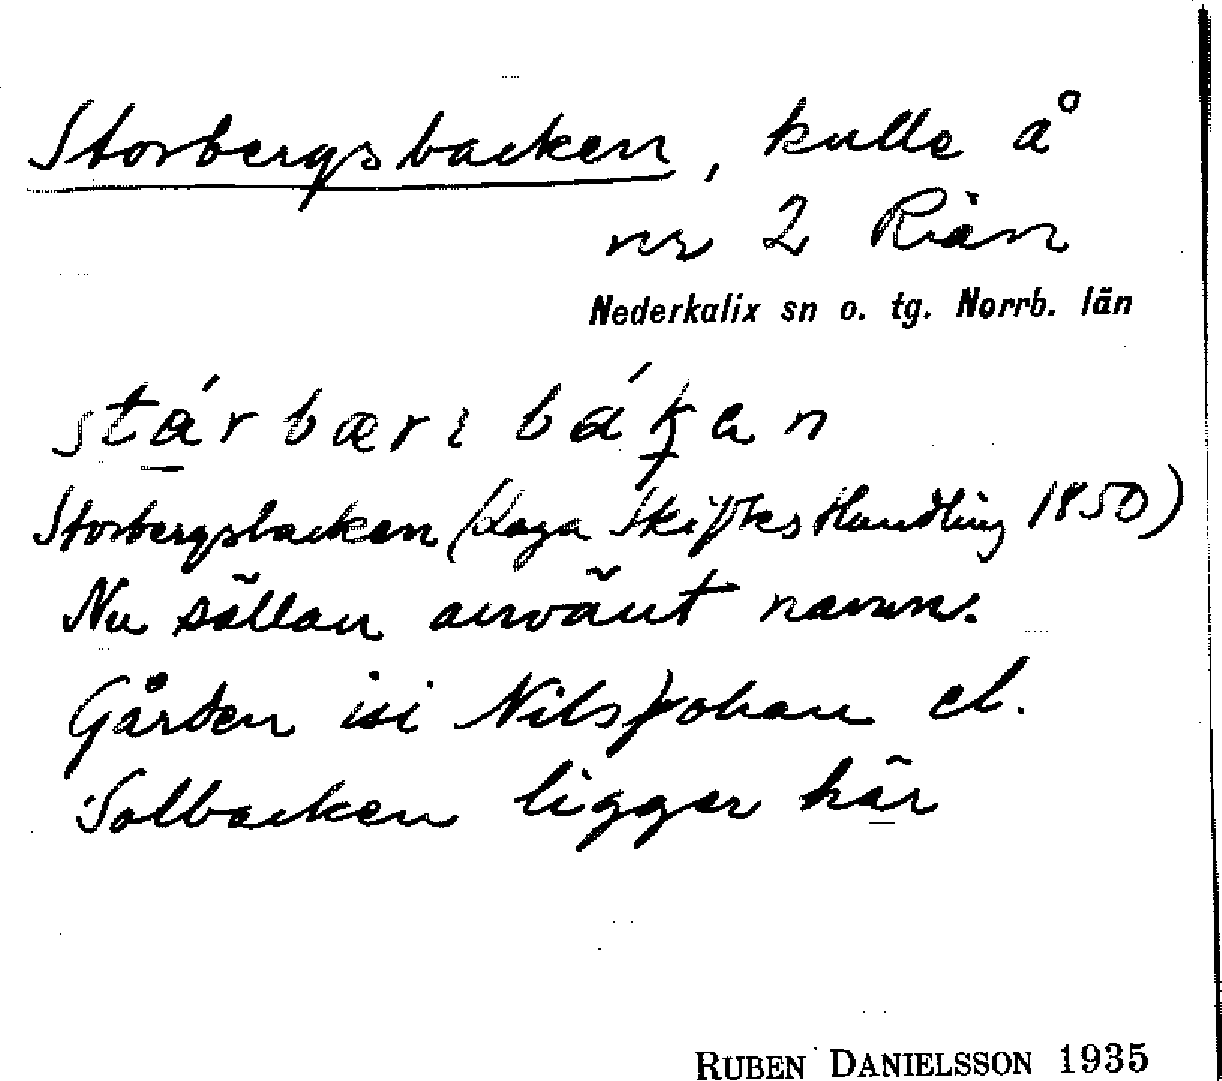 Storbergsbacken, kulle å
nr 2 Riån
Nederkalix sn o. tg. Norrb. län
stárbærɩbákan
Storbergsbacken (Laga Skiftes Handling 1850)
Nu sällan använt namn.
Gården isi NilsJohan el.
Solbacken ligger här
RUBEN DANIELSSON 1935